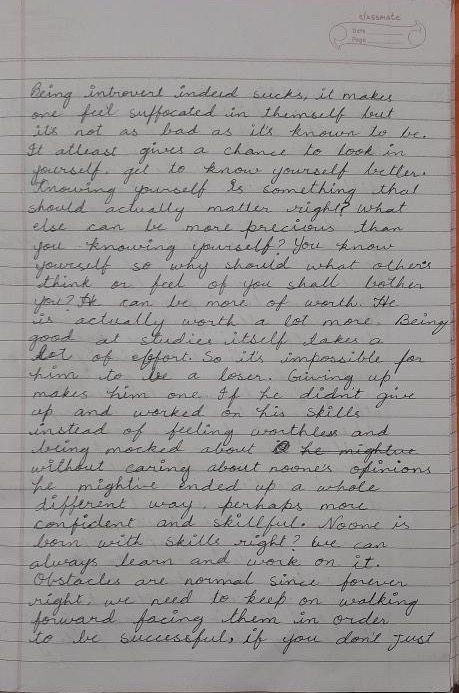 classmate
Date
Page
Being introvert indeed sucks, it makes
one feel suffocated in themself but
its not as bad as it's known to be.
It atleast gives a chance to look in
yourself, get to know yourself better.
Knowing yourself is something that
should actually matter right? What
else can be more precious than
you knowing yourself? You know
yourself so why should what others
think or feel of you shall bother
you? He can be more of worth. He
is actually worth a lot more. Being
good at studies itself takes a
lot of effort. So its impossible for
him to be a loser. Giving up
makes him one. If he didn't give
up and worked on his skills
instead of feeling worthless and
being mocked about he mightve
without caring about noone's opinions
he mightive ended up a whole
different way, perhaps more
confident and skillful. Noone is
born with skills right? We can
always learn and work on it.
Obstacles are normal since forever
right, we need to keep on walking
forward facing them in order
to be successful, if you don't just